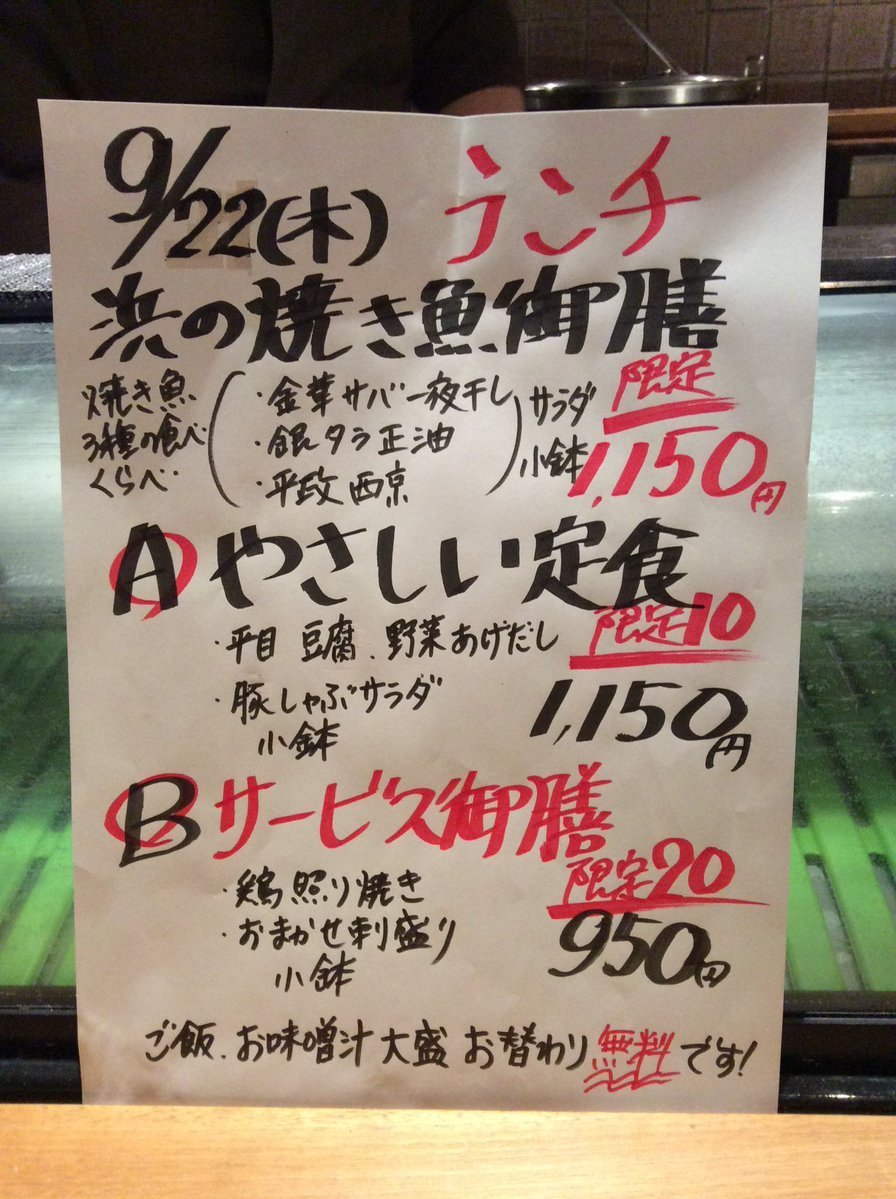 9/22(木) ランチ
浜の焼き魚御膳
限定
焼き魚
3種の食べ
くらべ
・金華サバ一夜干し
・銀タラ正油
・平政西京
サラダ
小鉢
1,150円
A やさしい定食
限定10
・平目 豆腐、野菜あげだし
・豚しゃぶサラダ
小鉢
1,150円
B サービス御膳
限定20
・鶏照り焼き
・おまかせ刺盛り
小鉢
950円
ご飯、お味噌汁大盛 お替わり無料です!